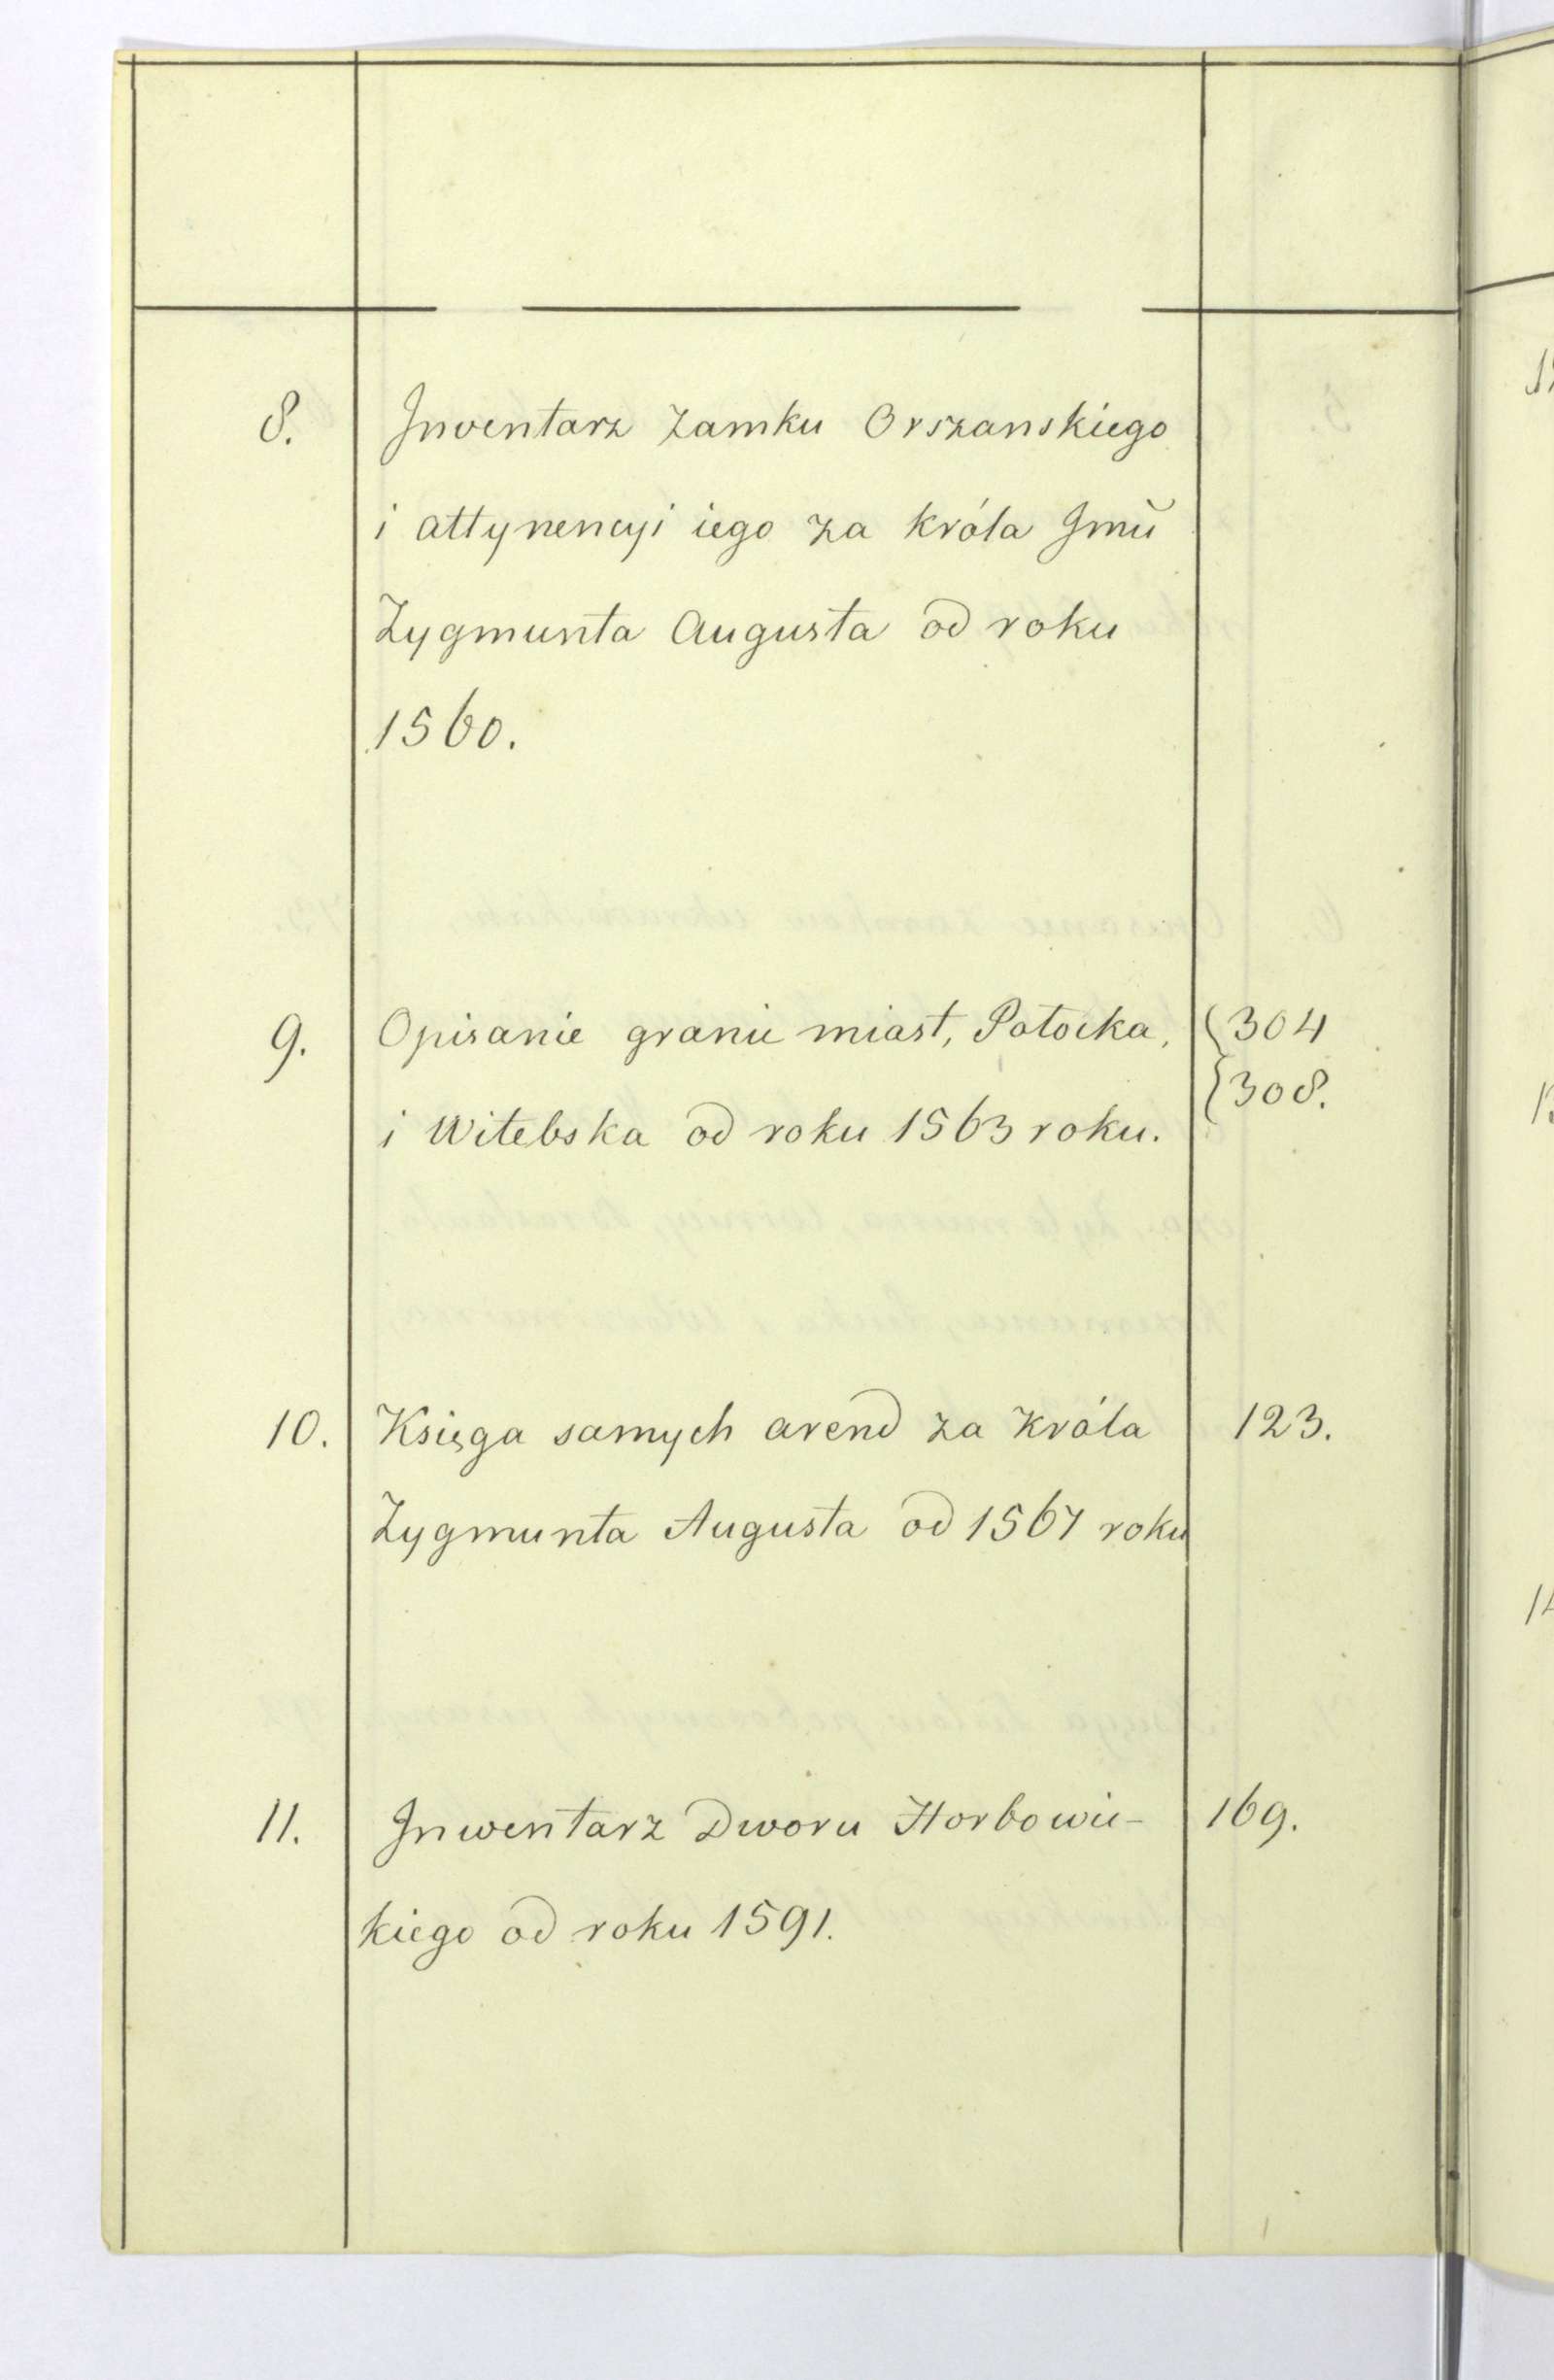 8. Inwentarz Zamku Orszanskiego
i attynencyi iego za króla Jmŭ
Zygmunta Augusta od roku
1560.
9. Opisanie granic miast, Połocka, 304
i Witebska od roku 1563 roku. 308.
10. Księga samych arend za króla 123.
Zygmunta Augusta od 1567 roku
11. Inwentarz Dworu Horbowic- 169.
kiego od roku 1591.